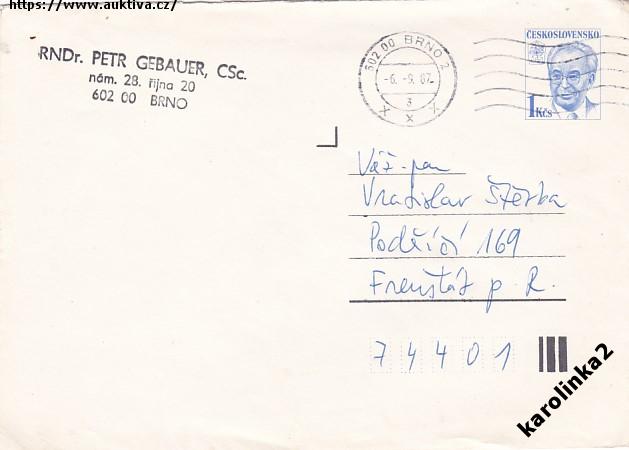 https://www.auktiva.cz/
RNDr. PETR GEBAUER, CSc.
nám. 28. října 20
602 00 BRNO
602 00 BRNO 2
-6.-9.87.
3
x x x
ČESKOSLOVENSKO
1 Kčs
Váž. pan
Vratislav Štěrba
Podříčí 169
Frenštát p. R.
74401
karolinka2